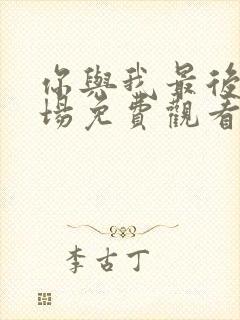 你與我最後
場免費觀看
李古丁